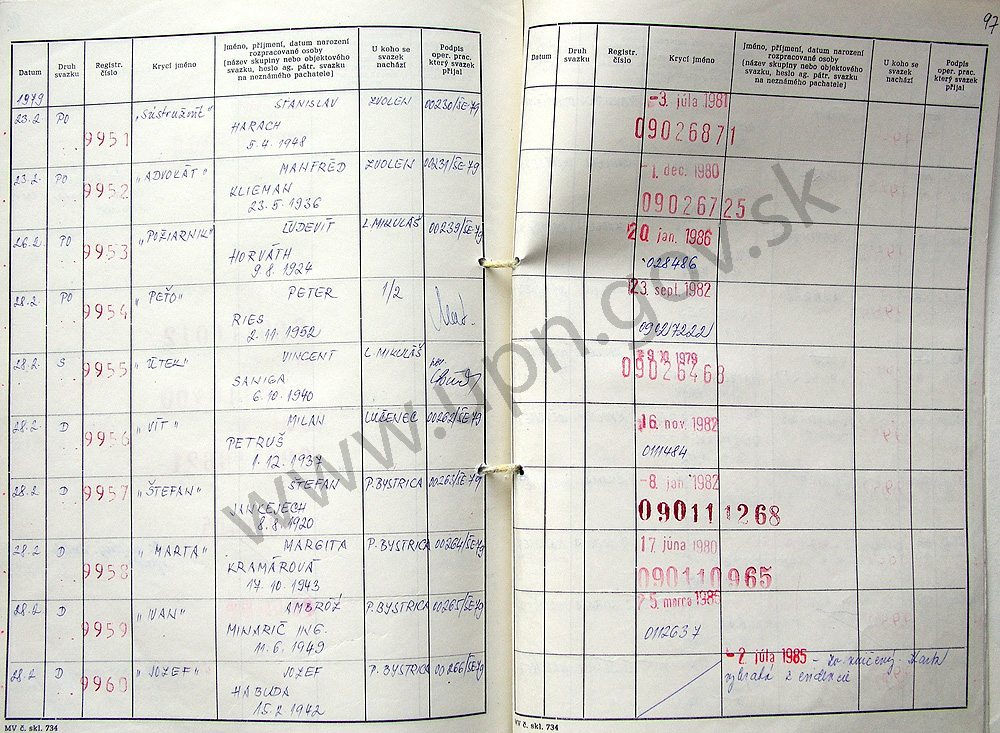 97
Datum
Druh svazku
Registr. číslo
Krycí jméno
Jméno, příjmení, datum narození
rozpracované osoby
(název skupiny nebo objektového
svazku, heslo ag. pátr. svazku
na neznámého pachatele)
U koho se svazek nachází
Podpis oper. prac. který svazek přijal
1979
23.2. PO 9951 „Sústružník" STANISLAV ZVOLEN 00230/ŠE-79
HARACH
5.4.1948
23.2. PO 9952 „ADVOKÁT" MANFRÉD ZVOLEN 00231/ŠE-79
KLIEMAN
23.5.1936
26.2. PO 9953 „POŽIARNIK" ĽUDEVÍT L. MIKULÁŠ 00239/ŠE-79
HORVÁTH
9.8.1924
28.2. PO 9954 „PEŤO" PETER 1/2
RIES
2.11.1952
28.2. S 9955 „ÚTEK" VINCENT L. MIKULÁŠ
SANIGA
6.10.1940
28.2. D 9956 „VÍT" MILAN LUČENEC 00262/ŠE-79
PETRUŠ
1.12.1937
28.2. D 9957 „ŠTEFAN" ŠTEFAN P. BYSTRICA 00263/ŠE-79
JANKEJECH
8.8.1920
28.2. D 9958 „MARTA" MARGITA P. BYSTRICA 00264/ŠE-79
KRAMÁROVÁ
17.10.1943
28.2. D 9959 „IVAN" AMBRÓZ P. BYSTRICA 00265/ŠE-79
MINARIČ ING.
11.6.1949
28.2. D 9960 „JOZEF" JOZEF P. BYSTRICA 00266/ŠE-79
HABUDA
15.2.1942
MV č. skl. 734
Datum
Druh svazku
Registr. číslo
Krycí jméno
Jméno, příjmení, datum narození
rozpracované osoby
(název skupiny nebo objektového
svazku, heslo ag. pátr. svazku
na neznámého pachatele)
U koho se svazek nachází
Podpis oper. prac. který svazek přijal
-3. júla 1981
09026871
-1. dec. 1980
09026725
20. jan. 1986
028486
23. sept. 1982
09027222
29. XI. 1979
09026468
16. nov. 1982
0111484
-8. jan. 1982
090111268
17. júna 1980
090110965
25. marca 1986
0112637
-2. júla 1985 -
vybratá z evidencie
MV č. skl. 734
www.upn.gov.sk